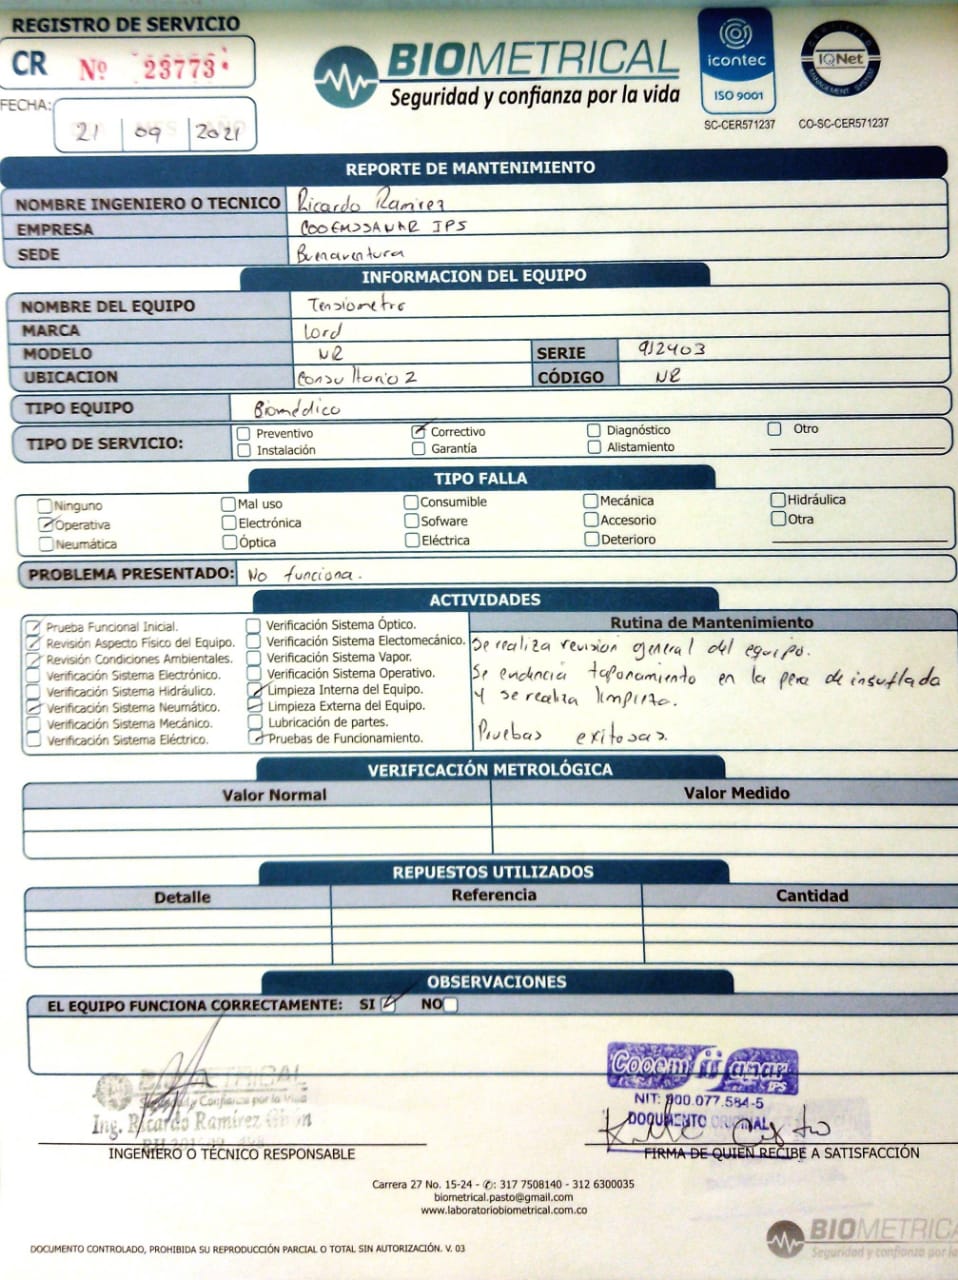 REGISTRO DE SERVICIO
CR Nº 23773
FECHA: 21 09 2021
BIOMETRICAL
Seguridad y confianza por la vida
icontec
ISO 9001
SC-CER571237
IQNet
MANAGEMENT SYSTEM
CO-SC-CER571237
REPORTE DE MANTENIMIENTO
NOMBRE INGENIERO O TECNICO Ricardo Ramirez
EMPRESA COOEMSSANAR IPS
SEDE Buenaventura
INFORMACION DEL EQUIPO
NOMBRE DEL EQUIPO Tensiometro
MARCA Lord
MODELO NR SERIE 912403
UBICACION Consultorio 2 CÓDIGO NR
TIPO EQUIPO Biomédico
TIPO DE SERVICIO: Preventivo Correctivo Diagnóstico Otro
Instalación Garantía Alistamiento
TIPO FALLA
Ninguno Mal uso Consumible Mecánica Hidráulica
Operativa Electrónica Sofware Accesorio Otra
Neumática Óptica Eléctrica Deterioro
PROBLEMA PRESENTADO: No funciona.
ACTIVIDADES
Prueba Funcional Inicial.
Revisión Aspecto Físico del Equipo.
Revisión Condiciones Ambientales.
Verificación Sistema Electrónico.
Verificación Sistema Hidráulico.
Verificación Sistema Neumático.
Verificación Sistema Mecánico.
Verificación Sistema Eléctrico.
Verificación Sistema Óptico.
Verificación Sistema Electomecánico.
Verificación Sistema Vapor.
Verificación Sistema Operativo.
Limpieza Interna del Equipo.
Limpieza Externa del Equipo.
Lubricación de partes.
Pruebas de Funcionamiento.
Rutina de Mantenimiento
Se realiza revision general del equipo.
Se evidencia taponamiento en la pera de insuflado
y se realiza limpieza.
Pruebas exitosas.
VERIFICACIÓN METROLÓGICA
Valor Normal Valor Medido
REPUESTOS UTILIZADOS
Detalle Referencia Cantidad
OBSERVACIONES
EL EQUIPO FUNCIONA CORRECTAMENTE: SI NO
BIOMETRICAL
Seguridad y Confianza por la Vida
Ing. Ricardo Ramírez
INGENIERO O TÉCNICO RESPONSABLE
Cooemssanar IPS
NIT: 900.077.584-5
DOCUMENTO ORIGINAL
FIRMA DE QUIEN RECIBE A SATISFACCIÓN
Carrera 27 No. 15-24 - ✆: 317 7508140 - 312 6300035
biometrical.pasto@gmail.com
www.laboratoriobiometrical.com.co
DOCUMENTO CONTROLADO, PROHIBIDA SU REPRODUCCIÓN PARCIAL O TOTAL SIN AUTORIZACIÓN. V. 03
BIOMETRICA
Seguridad y confianza por la